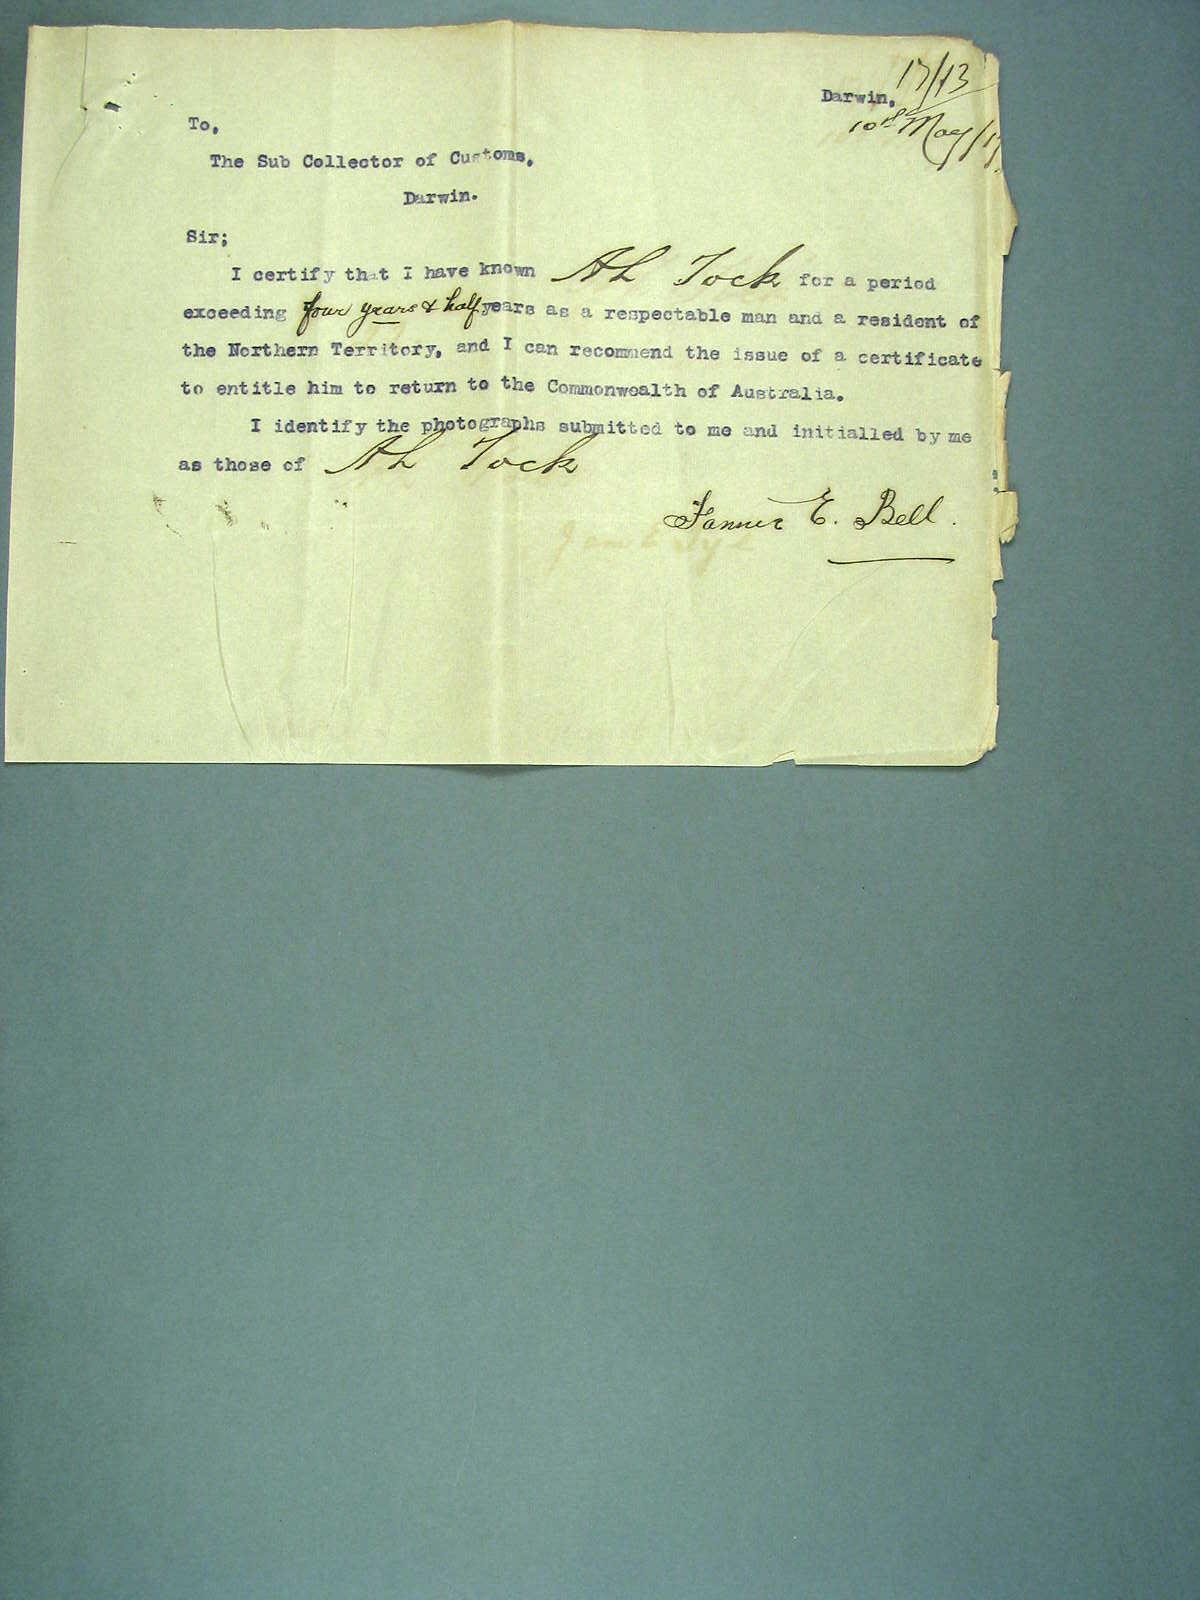 17/13
Darwin,
10th May/17.
To,
The Sub Collector of Customs,
Darwin.
Sir;
I certify that I have known Ah Tock for a period
exceeding four years & half years as a respectable man and a resident of
the Northern Territory, and I can recommend the issue of a certificate
to entitle him to return to the Commonwealth of Australia.
I identify the photographs submitted to me and initialled by me
as those of Ah Tock
Fannie E. Bell.